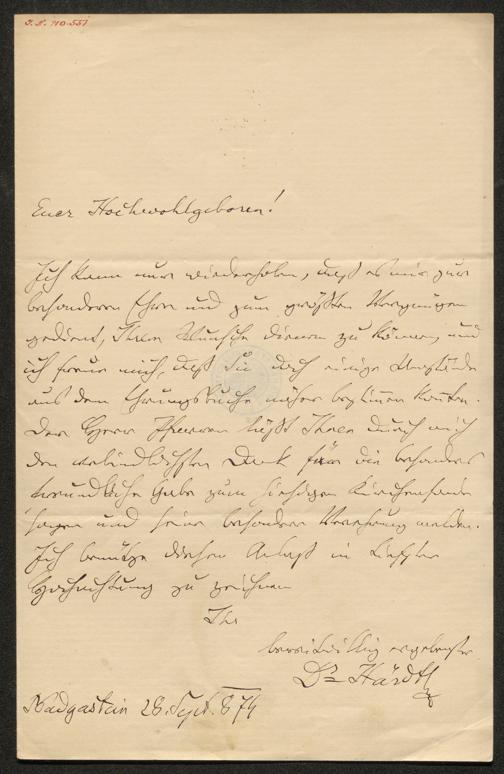 I. N. 710.551
Euer Hochwohlgeboren!
Ich kann nur wiederholen, daß es mir zur
besonderen Ehre und zum größten Vergnügen
gedient, Ihrem Wunsche dienen zu können, und
ich freue mich, daß Sie doch einige Umstände
aus dem näher bestimmen konnten.
Der Herr Pfarrer läßt Ihnen durch mich
den verbindlichsten Dank für die besonders
freundliche Gabe zum hiesigen Kirchenfonde
sagen und seine besondere Verehrung melden.
Ich benütze diesen Anlaß in
Hochachtung zu zeichnen
Ihr
bereitwillig ergebenster
Dr Härdtl
Badgastein 28. Sept. 874